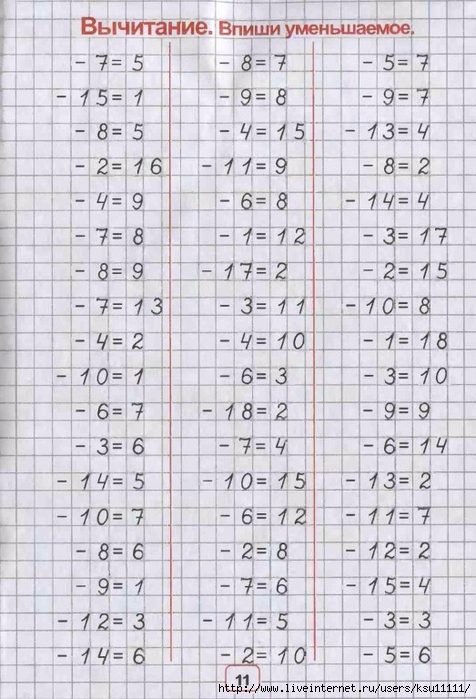 Вычитание. Впиши уменьшаемое.
- 7 = 5 - 8 = 7 - 5 = 7
- 15 = 1 - 9 = 8 - 9 = 7
- 8 = 5 - 4 = 15 - 13 = 4
- 2 = 16 - 11 = 9 - 8 = 2
- 4 = 9 - 6 = 8 - 14 = 4
- 7 = 8 - 1 = 12 - 3 = 17
- 8 = 9 - 17 = 2 - 2 = 15
- 7 = 13 - 3 = 11 - 10 = 8
- 4 = 2 - 4 = 10 - 1 = 18
- 10 = 1 - 6 = 3 - 3 = 10
- 6 = 7 - 18 = 2 - 9 = 9
- 3 = 6 - 7 = 4 - 6 = 14
- 14 = 5 - 10 = 15 - 13 = 2
- 10 = 7 - 6 = 12 - 11 = 7
- 8 = 6 - 2 = 8 - 12 = 2
- 9 = 1 - 7 = 6 - 15 = 4
- 12 = 3 - 11 = 5 - 3 = 3
- 14 = 6 - 2 = 10 - 5 = 6
11
http://www.liveinternet.ru/users/ksu11111/